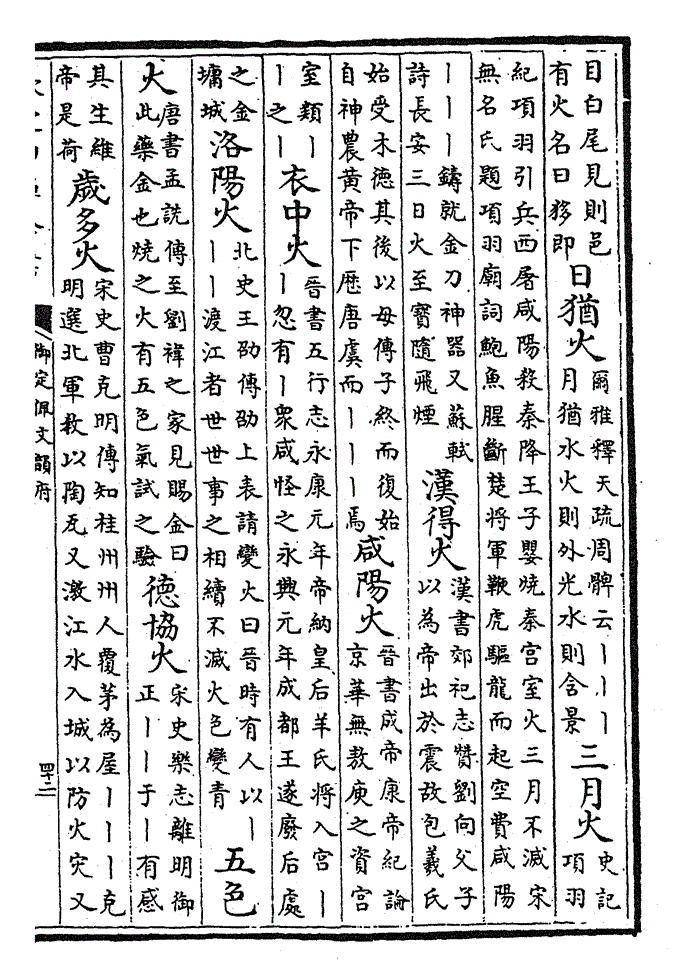 目白尾見則邑
有火名曰㺄即
日猶火
爾雅釋天疏周髀云丨丨丨
月猶水火則外光水則含景
三月火
史記
項羽
紀項羽引兵西屠咸陽殺秦降王子嬰燒秦宮室火三月不滅宋
無名氏題項羽廟詞鮑魚腥斷楚將軍鞭虎驅龍而起空費咸陽
丨丨丨鑄就金刀神器又蘇軾
詩長安三日火至寶隨飛煙
漢得火
漢書郊祀志贊劉向父子
以為帝出於震故包羲氏
始受木德其後以母傳子終而復始
自神農黄帝下歷唐虞而丨丨丨焉
咸陽火
晉書成帝康帝紀論
京華無敖庾之資宮
室類丨
丨之丨
衣中火
晉書五行志永康元年帝納皇后羊氏將入宮丨
丨忽有丨衆咸怪之永興元年成都王遂廢后處
之金
墉城
洛陽火
北史王劭傳劭上表請變火曰晉時有人以丨
丨丨渡江者世世事之相續不滅火色變青
五色
火
唐書孟詵傳至劉禕之家見賜金曰
此藥金也燒之火有五色氣試之驗
德協火
宋史樂志離明御
正丨丨于丨有感
其生維
帝是荷
歲多火
宋史曹克明傳知桂州州人覆茅為屋丨丨丨克
明選北軍教以陶瓦又激江水入城以防火災又
御定佩文韻府
四十二